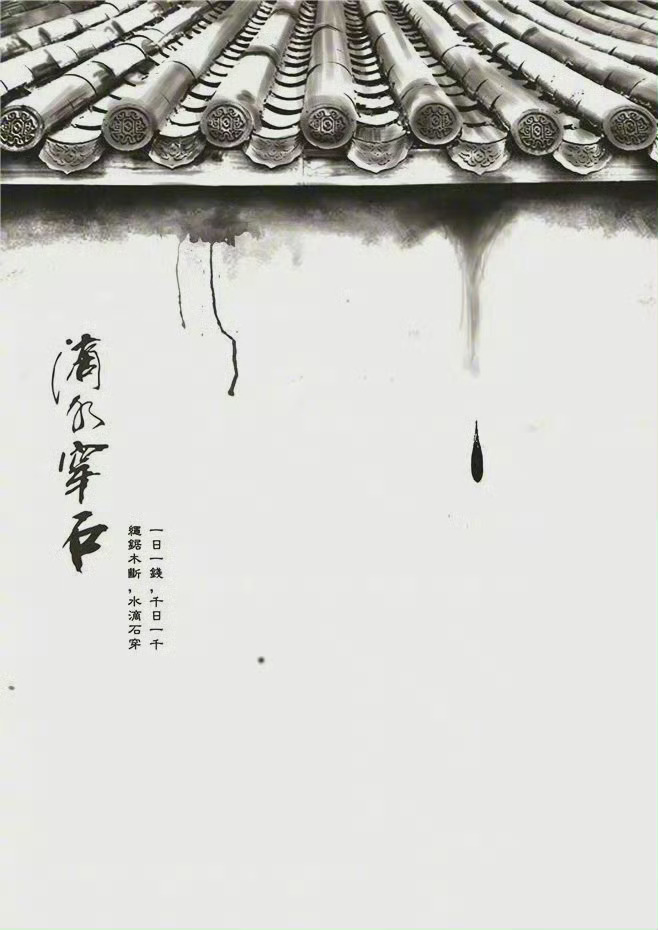 滴水穿石
一日一錢，千日一千
繩鋸木斷，水滴石穿